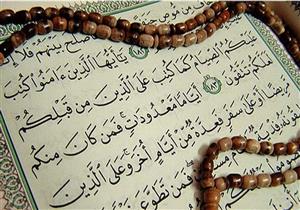 من موص
صلح بينهم فلا
١٨٢ يَٰٓأَيُّهَا ٱلَّذِينَ ءَامَنُوا۟ كُتِبَ
عَلَيْكُمُ ٱلصِّيَامُ كَمَا كُتِبَ عَلَى ٱلَّذِينَ مِن قَبْلِكُمْ
لَعَلَّكُمْ تَتَّقُونَ ١٨٣ أَيَّامًا مَّعْدُودَٰتٍ فَمَن كَانَ مِنكُم
مَّرِيضًا أَوْ عَلَىٰ سَفَرٍ فَعِدَّةٌ مِّنْ أَيَّامٍ أُخَرَ وَعَلَى ٱلَّذِينَ
فَمَن تَطَوَّعَ